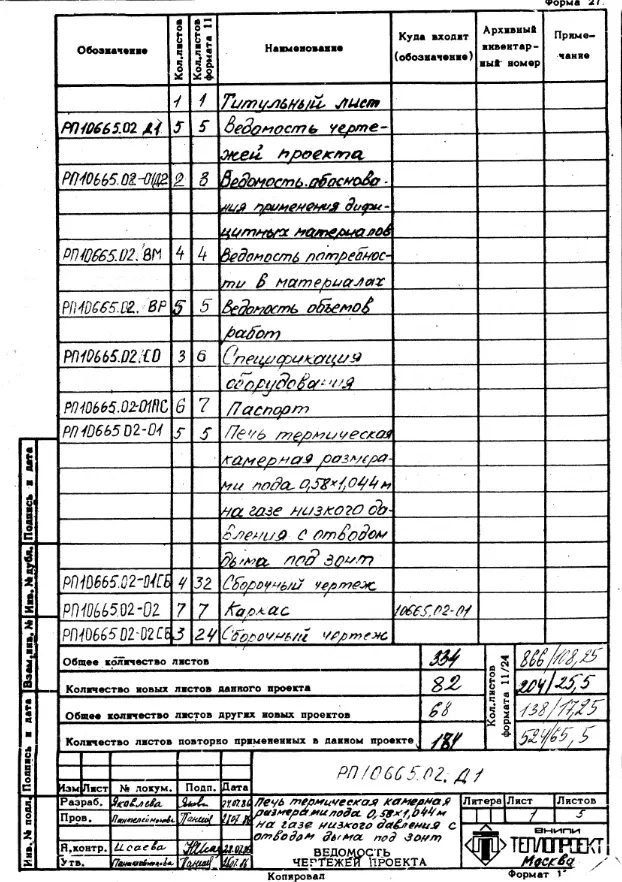 Форма 27.
Обозначение Кол.листов Кол.листов формата 11 Наименование Куда входит (обозначение) Архивный инвентарный номер Примечание
1 1 Титульный лист
РП10665.02 Д1 5 5 Ведомость черте-
жей проекта
РП10665.02-01Д2 2 3 Ведомость обоснова-
ния применения дифи-
цитных материалов
РП10665.02. ВМ 4 4 Ведомость потребнос-
ти в материалах
РП10665.02. ВР 5 5 Ведомость объемов
работ
РП10665.02. СО 3 6 Спецификация
оборудования
РП10665.02-01ПС 6 7 Паспорт
РП10665 02-01 5 5 Печь термическая
камерная размера-
ми пода 0,58×1,044м
на газе низкого да-
вления с отводом
дыма под зонт
РП10665.02-01СБ 4 32 Сборочный чертеж
РП10665 02-02 7 7 Каркас 10665.02-01
РП10665 02-02СБ 3 24 Сборочный чертеж
Общее количество листов 334 Кол.листов формата 11/24 866/108,25
Количество новых листов данного проекта 82 204/25,5
Общее количество листов других новых проектов 68 138/17,25
Количество листов повторно примененных в данном проекте 184 524/65,5
РП10665.02. Д1
Изм Лист № докум. Подп. Дата
Разраб. Яковлева
Пров.
Н.контр. Исаева
Утв.
Печь термическая камерная
размерами пода 0,58×1,044м
на газе низкого давления с
отводом дыма под зонт
ВЕДОМОСТЬ
ЧЕРТЕЖЕЙ ПРОЕКТА
Литера Лист Листов
1 5
ВНИПИ
ТЕПЛОПРОЕКТ
Москва
Копировал Формат 1
Инв. № подл. Подпись и дата Взам.инв. № Инв. № дубл. Подпись и дата